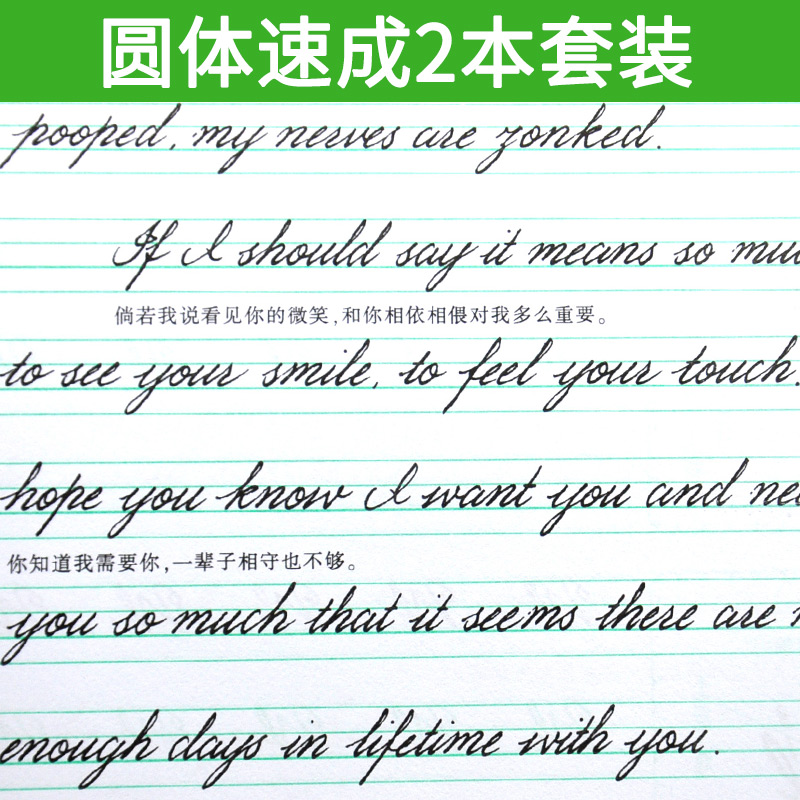 圆体速成2本套装
pooped, my nerves are zonked.
If I should say it means so
倘若我说看见你的微笑,和你相依相偎对我多么重要。
to see your smile, to feel your touch.
hope you know I want you and
你知道我需要你,一辈子相守也不够。
you so much that it seems there are
enough days in lifetime with you.